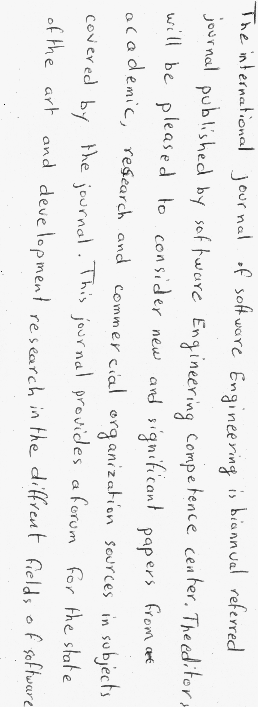 The international journal of software Engineering is biannual referred
journal published by software Engineering Competence center. The editors
will be pleased to consider new and significant papers from
academic, research and commercial organization sources in subjects
covered by the journal. This journal provides a forum for the state
of the art and development research in the diffrent fields of software